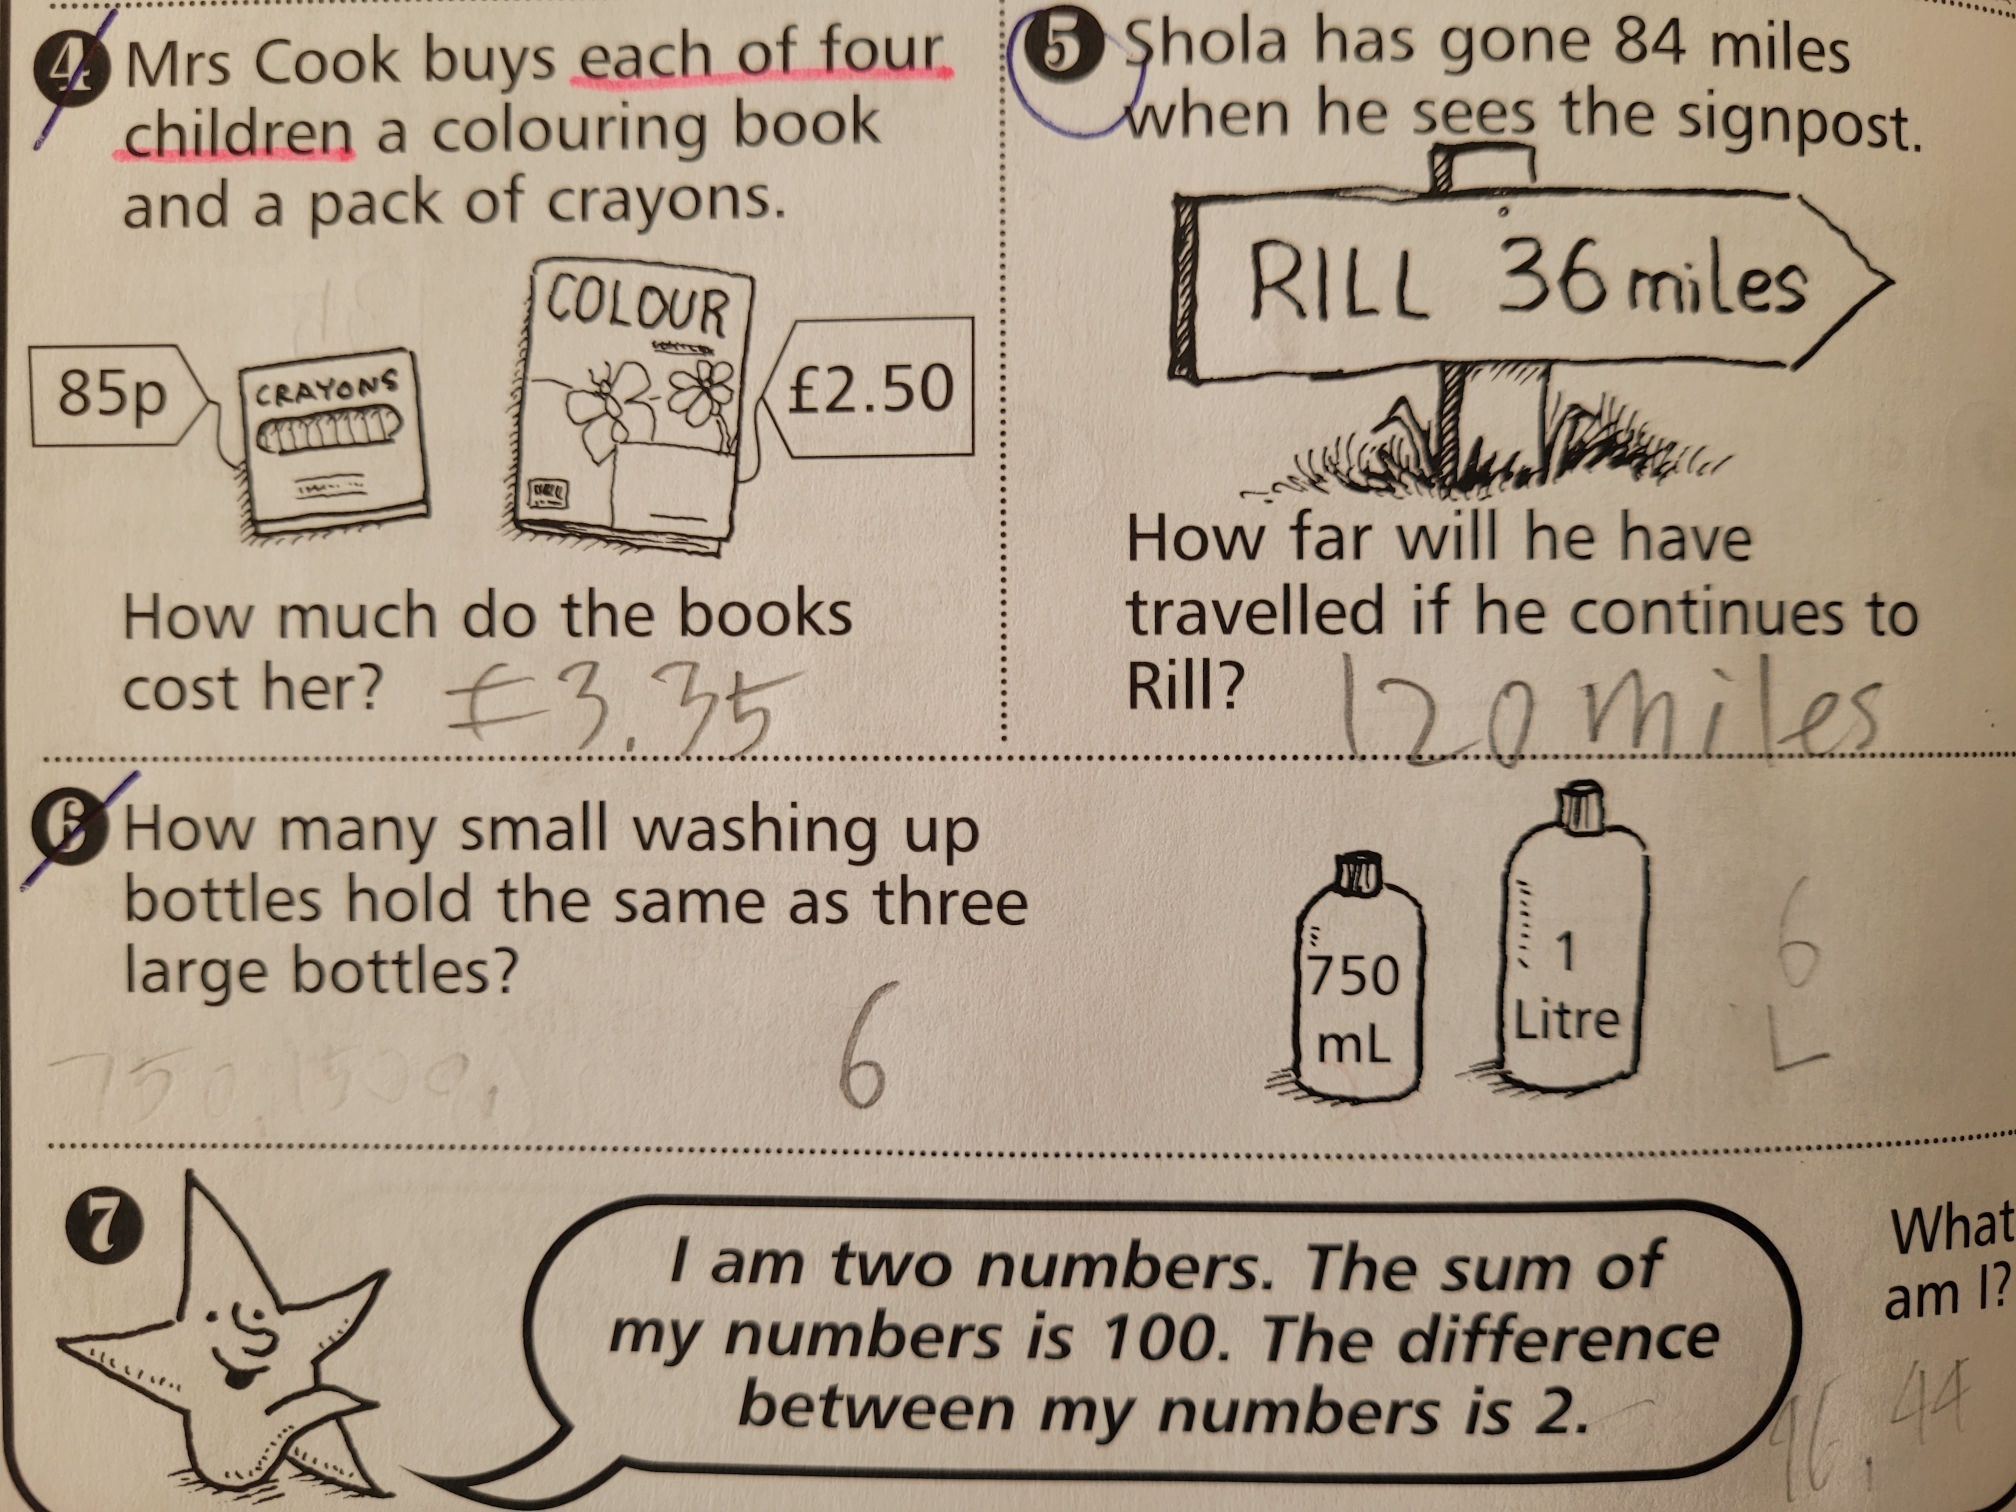 4 Mrs Cook buys each of four
children a colouring book
and a pack of crayons.
85p
CRAYONS
COLOUR
£2.50
How much do the books
cost her? £3.35
5 Shola has gone 84 miles
when he sees the signpost.
RILL 36 miles
How far will he have
travelled if he continues to
Rill? 120 miles
6 How many small washing up
bottles hold the same as three
large bottles?
6
750
mL
1
Litre
6
L
7
I am two numbers. The sum of
my numbers is 100. The difference
between my numbers is 2.
What
am I?
44